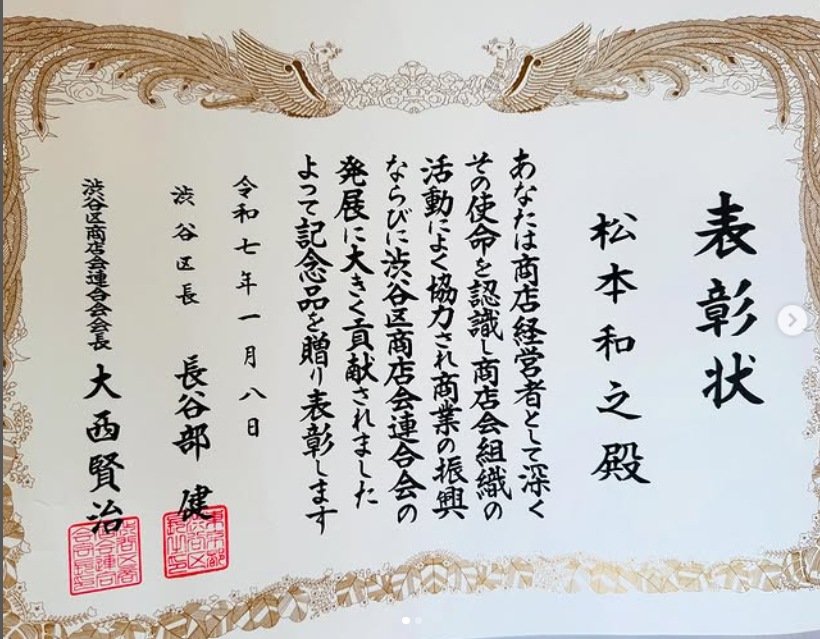 表彰状
松本和之殿
あなたは商店経営者として深く
その使命を認識し商店会組織の
活動によく協力され商業の振興
ならびに渋谷区商店会連合会の
発展に大きく貢献されました
よって記念品を贈り表彰します
令和七年一月八日
渋谷区長 長谷部 健
渋谷区商店会連合会会長 大西賢治